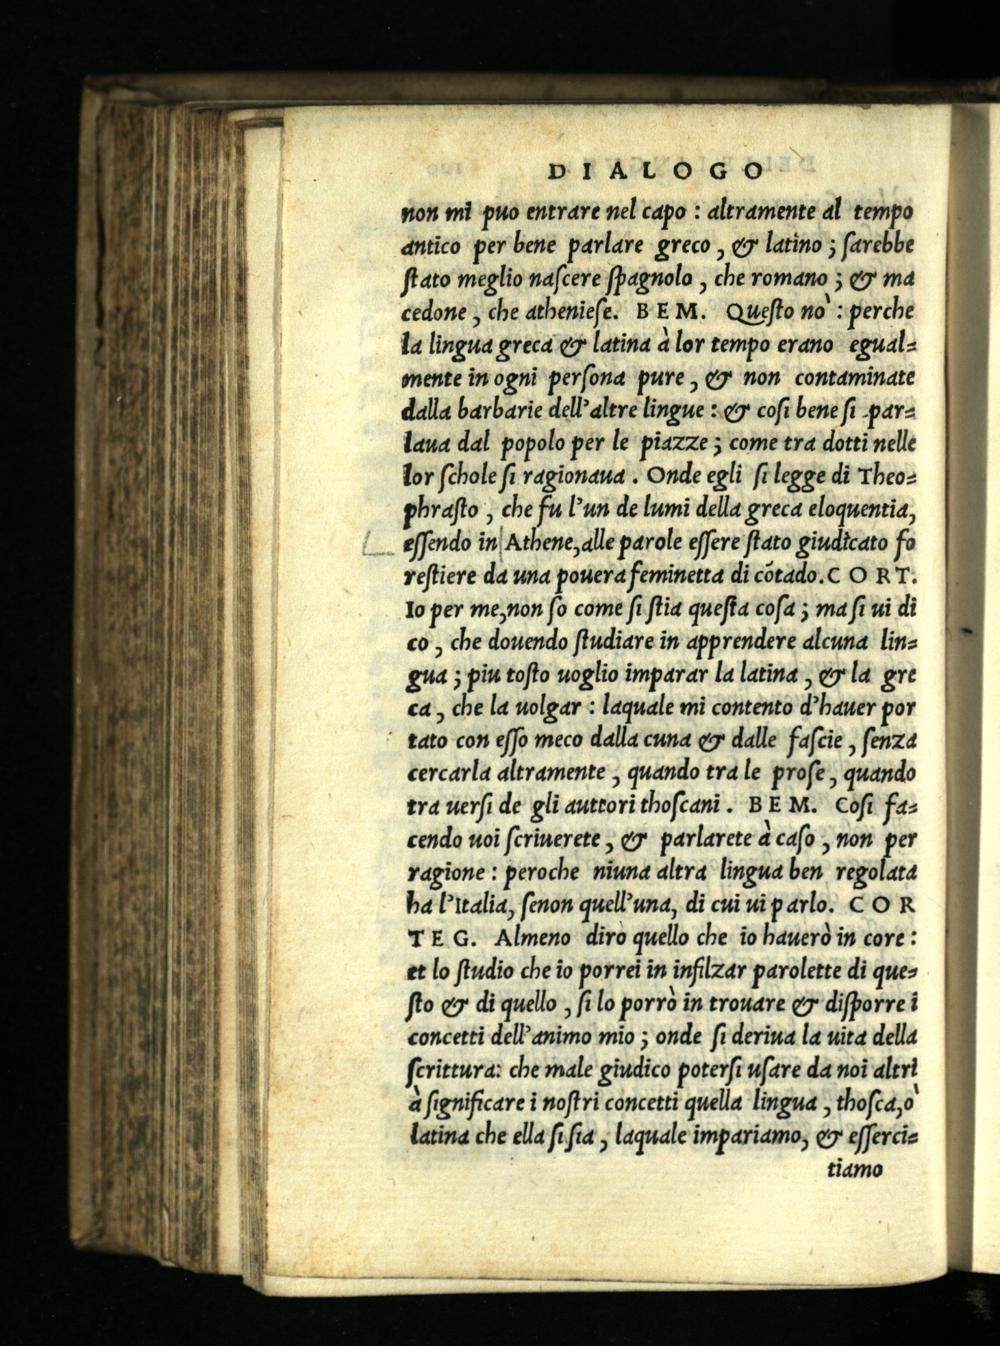 DIALOGO
non mi puo entrare nel capo : altramente al tempo
antico per bene parlare greco , & latino ; ſarebbe
ſtato meglio naſcere ſpagnolo , che romano ; & ma
cedone , che athenieſe. BEM. Queſto nò : perche
la lingua greca & latina à lor tempo erano egual=
mente in ogni perſona pure , & non contaminate
dalla barbarie dell'altre lingue : & coſi bene ſi par=
laua dal popolo per le piazze ; come tra dotti nelle
lor ſchole ſi ragionaua . Onde egli ſi legge di Theo=
phraſto , che fu l'un de lumi della greca eloquentia,
eſſendo in Athene, alle parole eſſere ſtato giudicato fo
reſtiere da una pouera feminetta di cõtado. CORT.
Io per me, non ſo come ſi ſtia queſta coſa ; ma ſi ui di
co , che douendo ſtudiare in apprendere alcuna lin=
gua ; piu toſto uoglio imparar la latina , & la gre
ca , che la uolgar : laquale mi contento d'hauer por
tato con eſſo meco dalla cuna & dalle faſcie , ſenza
cercarla altramente , quando tra le proſe , quando
tra uerſi de gli auttori thoſcani . BEM. Coſi fa=
cendo uoi ſcriuerete , & parlarete à caſo , non per
ragione : peroche niuna altra lingua ben regolata
ha l'Italia, ſenon quell'una, di cui ui parlo. COR
TEG. Almeno dirò quello che io hauerò in core :
et lo ſtudio che io porrei in infilzar parolette di que=
ſto & di quello , ſi lo porrò in trouare & diſporre i
concetti dell'animo mio ; onde ſi deriua la uita della
ſcrittura: che male giudico poterſi uſare da noi altri
à ſignificare i noſtri concetti quella lingua , thoſca, ò
latina che ella ſi ſia , laquale impariamo, & eſſerci=
tiamo